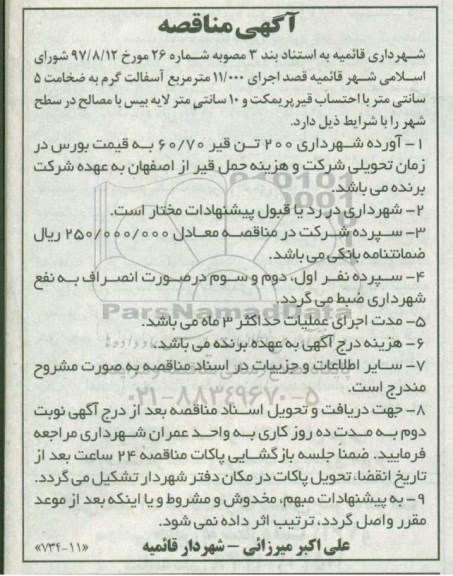 آگهی مناقصه
شهرداری قائمیه به استناد بند ۳ مصوبه شماره ۲۶ مورخ ۹۷/۸/۱۲ شورای
اسلامی شهر قائمیه قصد اجرای ۱۱/۰۰۰ مترمربع آسفالت گرم به ضخامت ۵
سانتی متر با احتساب قیرپریمکت و ۱۰ سانتی متر لایه بیس با مصالح در سطح
شهر را با شرایط ذیل دارد.
۱- آورده شهرداری ۲۰۰ تن قیر ۶۰/۷۰ به قیمت بورس در
زمان تحویلی شرکت و هزینه حمل قیر از اصفهان به عهده شرکت
برنده می باشد.
۲- شهرداری در رد یا قبول پیشنهادات مختار است.
۳- سپرده شرکت در مناقصه معادل ۲۵۰/۰۰۰/۰۰۰ ریال
ضمانتنامه بانکی می باشد.
۴- سپرده نفر اول، دوم و سوم درصورت انصراف به نفع
شهرداری ضبط می گردد.
ParsNamadData
۵- مدت اجرای عملیات حداکثر ۳ ماه می باشد.
۶- هزینه درج آگهی به عهده برنده می باشد.
۷- سایر اطلاعات و جزییات در اسناد مناقصه به صورت مشروح
مندرج است.
۰۲۱-۸۸۳۴۹۶۷۰-۵
۸- جهت دریافت و تحویل اسناد مناقصه بعد از درج آگهی نوبت
دوم به مدت ده روز کاری به واحد عمران شهرداری مراجعه
فرمایید. ضمناً جلسه بازگشایی پاکات مناقصه ۲۴ ساعت بعد از
تاریخ انقضا، تحویل پاکات در مکان دفتر شهردار تشکیل می گردد.
۹- به پیشنهادات مبهم، مخدوش و مشروط و یا اینکه بعد از موعد
مقرر واصل گردد، ترتیب اثر داده نمی شود.
علی اکبر میرزائی - شهردار قائمیه
«۷۳۴-۱۱»